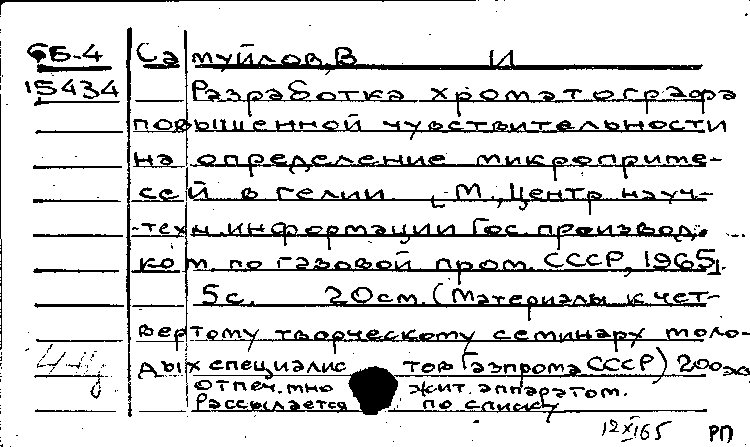 СБ-4 Самуйлов, В И
15434 Разработка хроматографа
повышенной чувствительности
на определение микроприме-
сей в гелии. [М., Центр науч-
-техн. информации Гос. производ.
ком. по газовой пром. СССР, 1965].
5с. 20см. (Материалы к чет-
вертому творческому семинару моло-
дых специалистов Газпрома СССР) 200эк
отпеч. множит. аппаратом.
Рассылается по списку
12XI65 РП